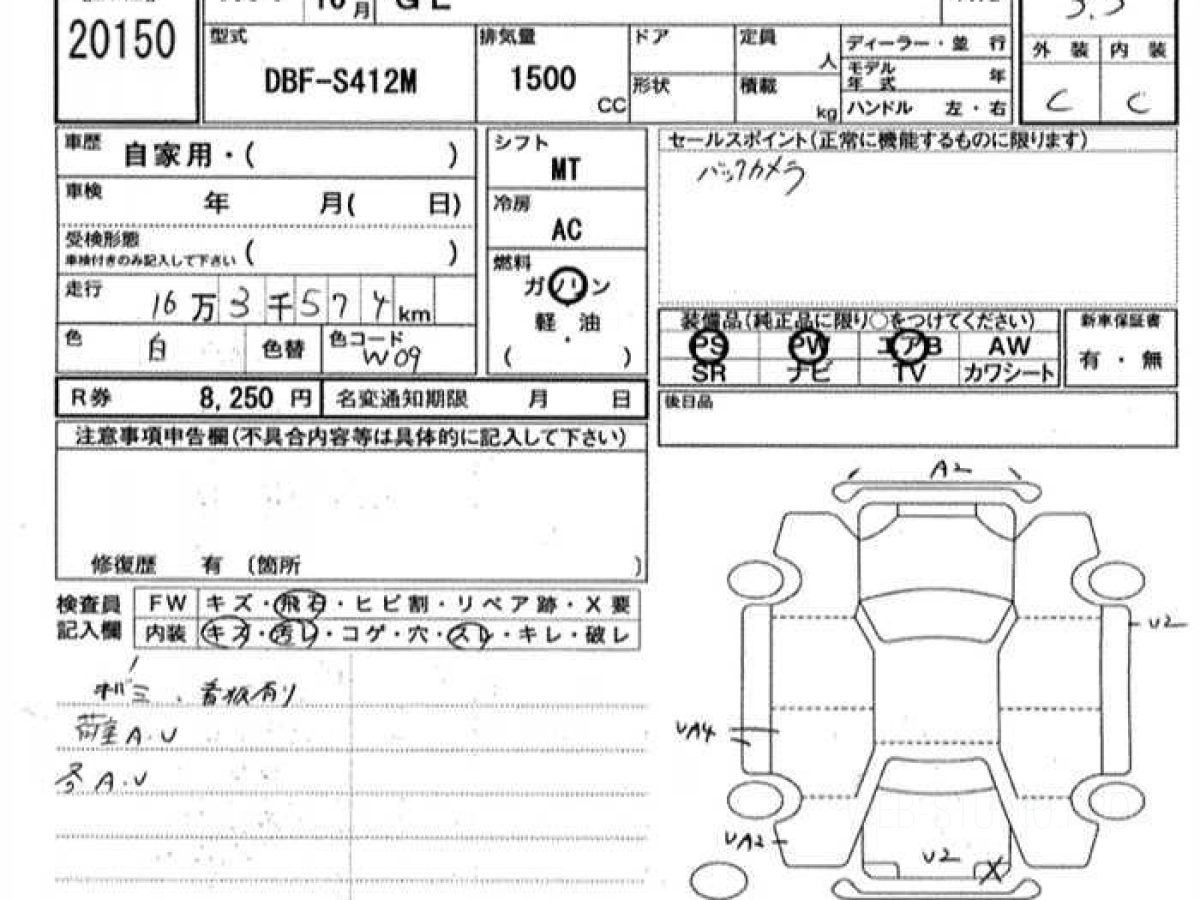 20150
型式 DBF-S412M
排気量 1500 CC
ドア
形状
定員 人
積載 kg
ディーラー・並 行
モデル年式 年
ハンドル 左・右
3.5
外装 内装
C C
車歴 自家用・( )
車検 年 月( 日)
受検形態 ( )
車検付きのみ記入して下さい
走行 16万3千574km
色 白 色替 色コード W09
シフト
MT
冷房
AC
燃料
ガソリン
軽・油
( )
セールスポイント(正常に機能するものに限ります)
バックカメラ
装備品(純正品に限り○をつけてください)
PS PW エアB AW
SR ナビ TV カワシート
新車保証書
有・無
R券 8,250 円 名変通知期限 月 日
後日品
注意事項申告欄(不具合内容等は具体的に記入して下さい)
修復歴 有 〔箇所 〕
検査員記入欄
FW キズ・飛石・ヒビ割・リペア跡・X要
内装 キズ・汚レ・コゲ・穴・スレ・キレ・破レ
看板有り
荷室 A.U
A.U
A2
U2
UA4
UA2
U2 X